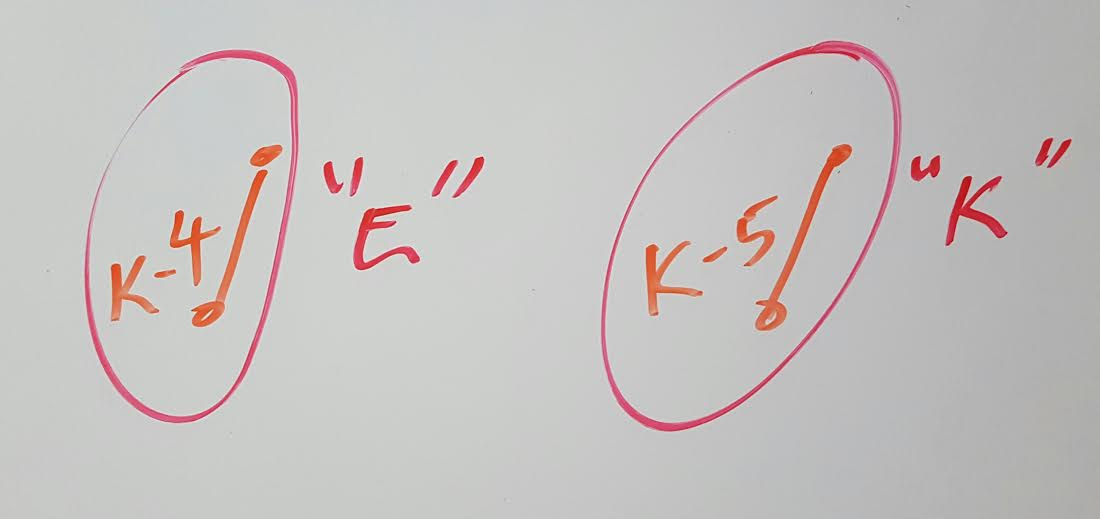 K-4 "E"
K-5 "K"